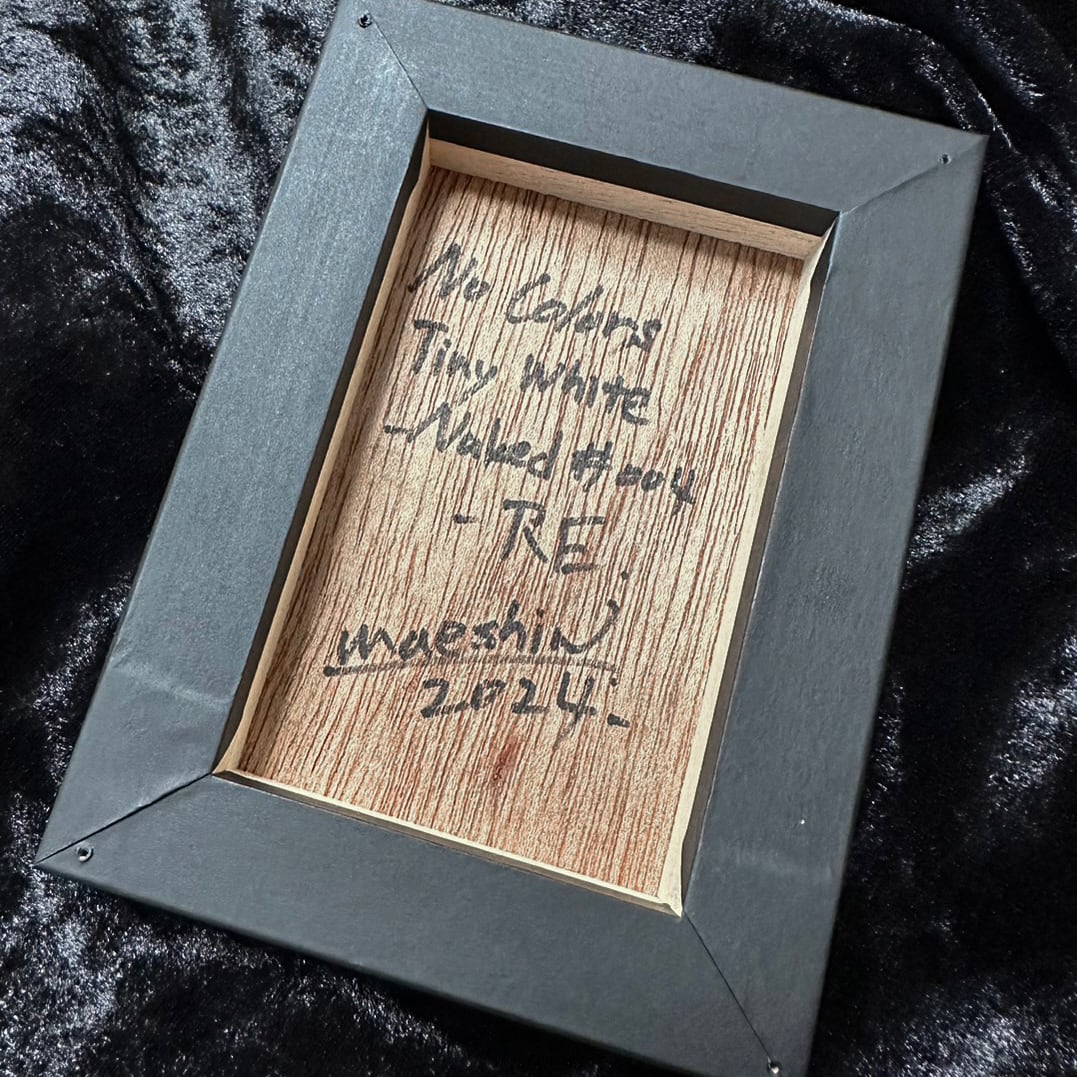 No Colors
Tiny White
-Naked #004
- RE.
maeshin
2024.